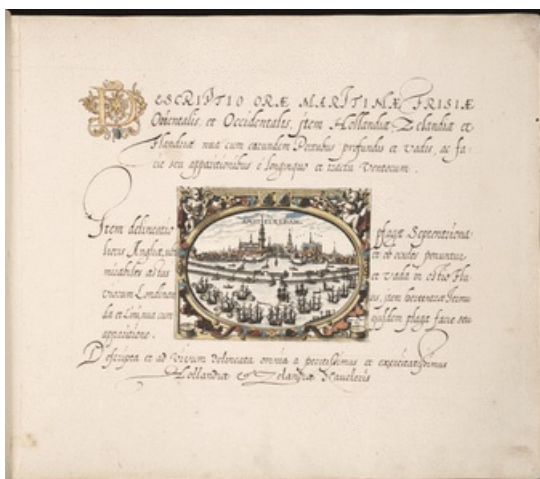 DESCRIPTIO ORÆ MARITIMÆ FRISIÆ
Orientalis, et Occidentales, jtem Hollandiæ Zelandiæ et
Flandriæ una cum earundem Portubus profundis et vadis, ac fa-
cie seu apparitionibus é longinquo et tractu Ventorum.
AMSTELREDAM.
Jtem delineatio plagæ Septentriona-
lioris Angliæ, et ob oculos ponuntur
æstus et vada in ostio Flu-
viorum
da et cum ejusdem plagæ facie seu
apparitione.
Descripta et ad vivum delineata omnia a peritissimis et exercitatissimis
Hollandiæ Zelandiæ Naucleris